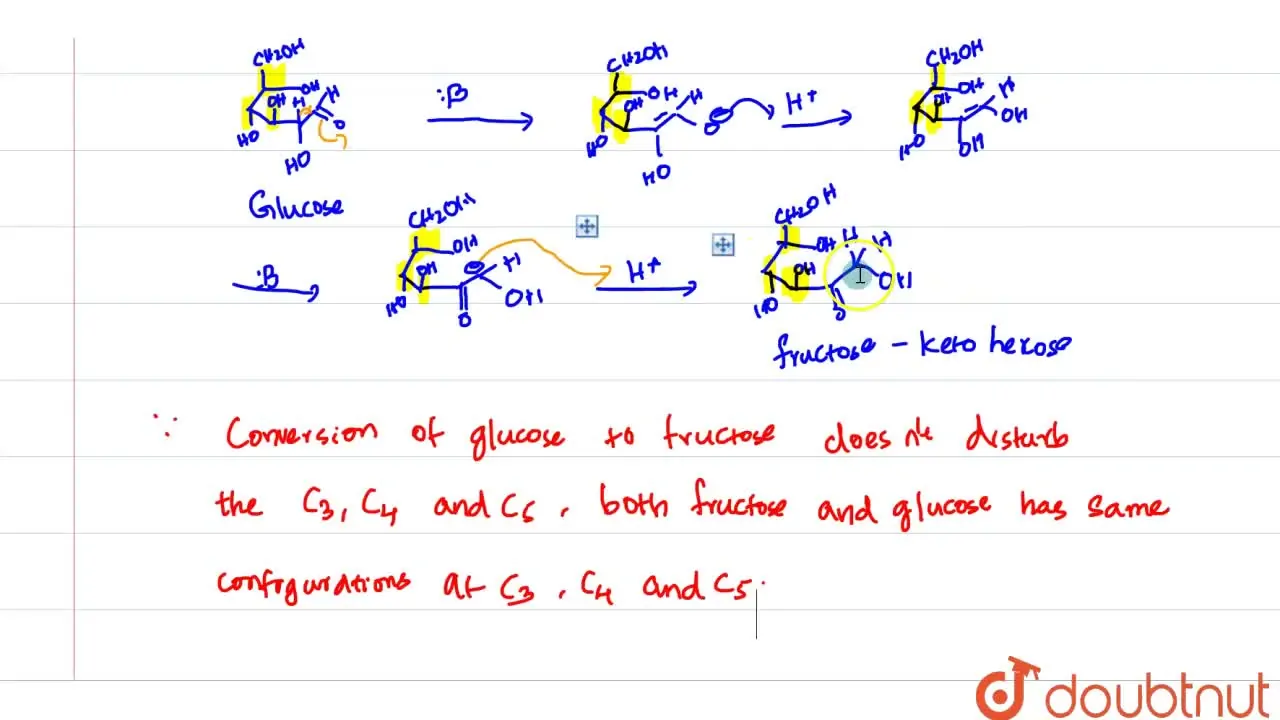 CH2OH CH2OH CH2OH
OH OH H H :B OH OH H H+ OH OH H
HO O HO O HO OH
HO HO OH
Glucose
CH2OH CH2OH
OH OH H H
:B OH H H+ OH OH
HO O OH HO O
fructose - keto hexose
∵ Conversion of glucose to fructose does n't disturb
the C3, C4 and C5, both fructose and glucose has same
configurations at C3, C4 and C5.
doubtnut